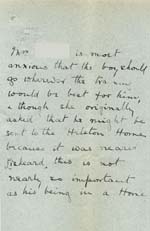 Mrs is most
anxious that the boy should
go wherever the training
would be best for him,
& though she originally
asked that he might be
sent to the Hilston Home
because it was nearer
Liskeard, this is not
nearly so important
as his being in a Home